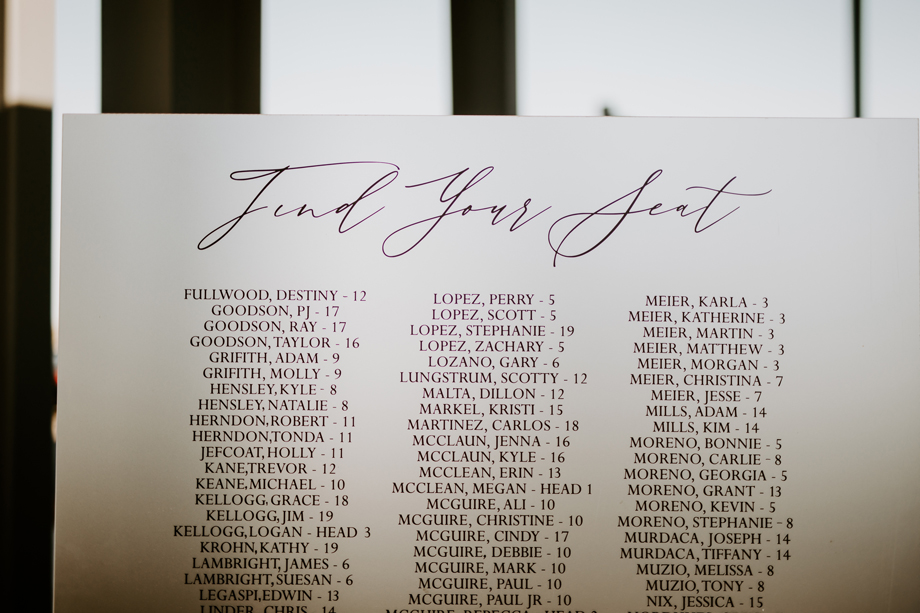 Find Your Seat
FULLWOOD, DESTINY - 12
GOODSON, PJ - 17
GOODSON, RAY - 17
GOODSON,TAYLOR - 16
GRIFITH, ADAM - 9
GRIFITH, MOLLY - 9
HENSLEY, KYLE - 8
HENSLEY, NATALIE - 8
HERNDON,ROBERT - 11
HERNDON,TONDA - 11
JEFCOAT, HOLLY - 11
KANE,TREVOR - 12
KEANE, MICHAEL - 10
KELLOGG, GRACE - 18
KELLOGG, JIM - 19
KELLOGG, LOGAN - HEAD 3
KROHN, KATHY - 19
LAMBRIGHT, JAMES - 6
LAMBRIGHT, SUESAN - 6
LEGASPI,EDWIN - 13
LINDER, CHRIS - 14
LOPEZ, PERRY - 5
LOPEZ, SCOTT - 5
LOPEZ, STEPHANIE - 19
LOPEZ, ZACHARY - 5
LOZANO, GARY - 6
LUNGSTRUM, SCOTTY - 12
MALTA, DILLON - 12
MARKEL, KRISTI - 15
MARTINEZ, CARLOS - 18
MCCLAUN, JENNA - 16
MCCLAUN, KYLE - 16
MCCLEAN, ERIN - 13
MCCLEAN, MEGAN - HEAD 1
MCGUIRE, ALI - 10
MCGUIRE, CHRISTINE - 10
MCGUIRE, CINDY - 17
MCGUIRE, DEBBIE - 10
MCGUIRE, MARK - 10
MCGUIRE, PAUL - 10
MCGUIRE, PAUL JR - 10
MCGUIRE, REBECCA - HEAD
MEIER, KARLA - 3
MEIER, KATHERINE - 3
MEIER, MARTIN - 3
MEIER, MATTHEW - 3
MEIER, MORGAN - 3
MEIER, CHRISTINA - 7
MEIER, JESSE - 7
MILLS, ADAM - 14
MILLS, KIM - 14
MORENO, BONNIE - 5
MORENO, CARLIE - 8
MORENO, GEORGIA - 5
MORENO, GRANT - 13
MORENO, KEVIN - 5
MORENO, STEPHANIE - 8
MURDACA, JOSEPH - 14
MURDACA, TIFFANY - 14
MUZIO, MELISSA - 8
MUZIO, TONY - 8
NIX, JESSICA - 15